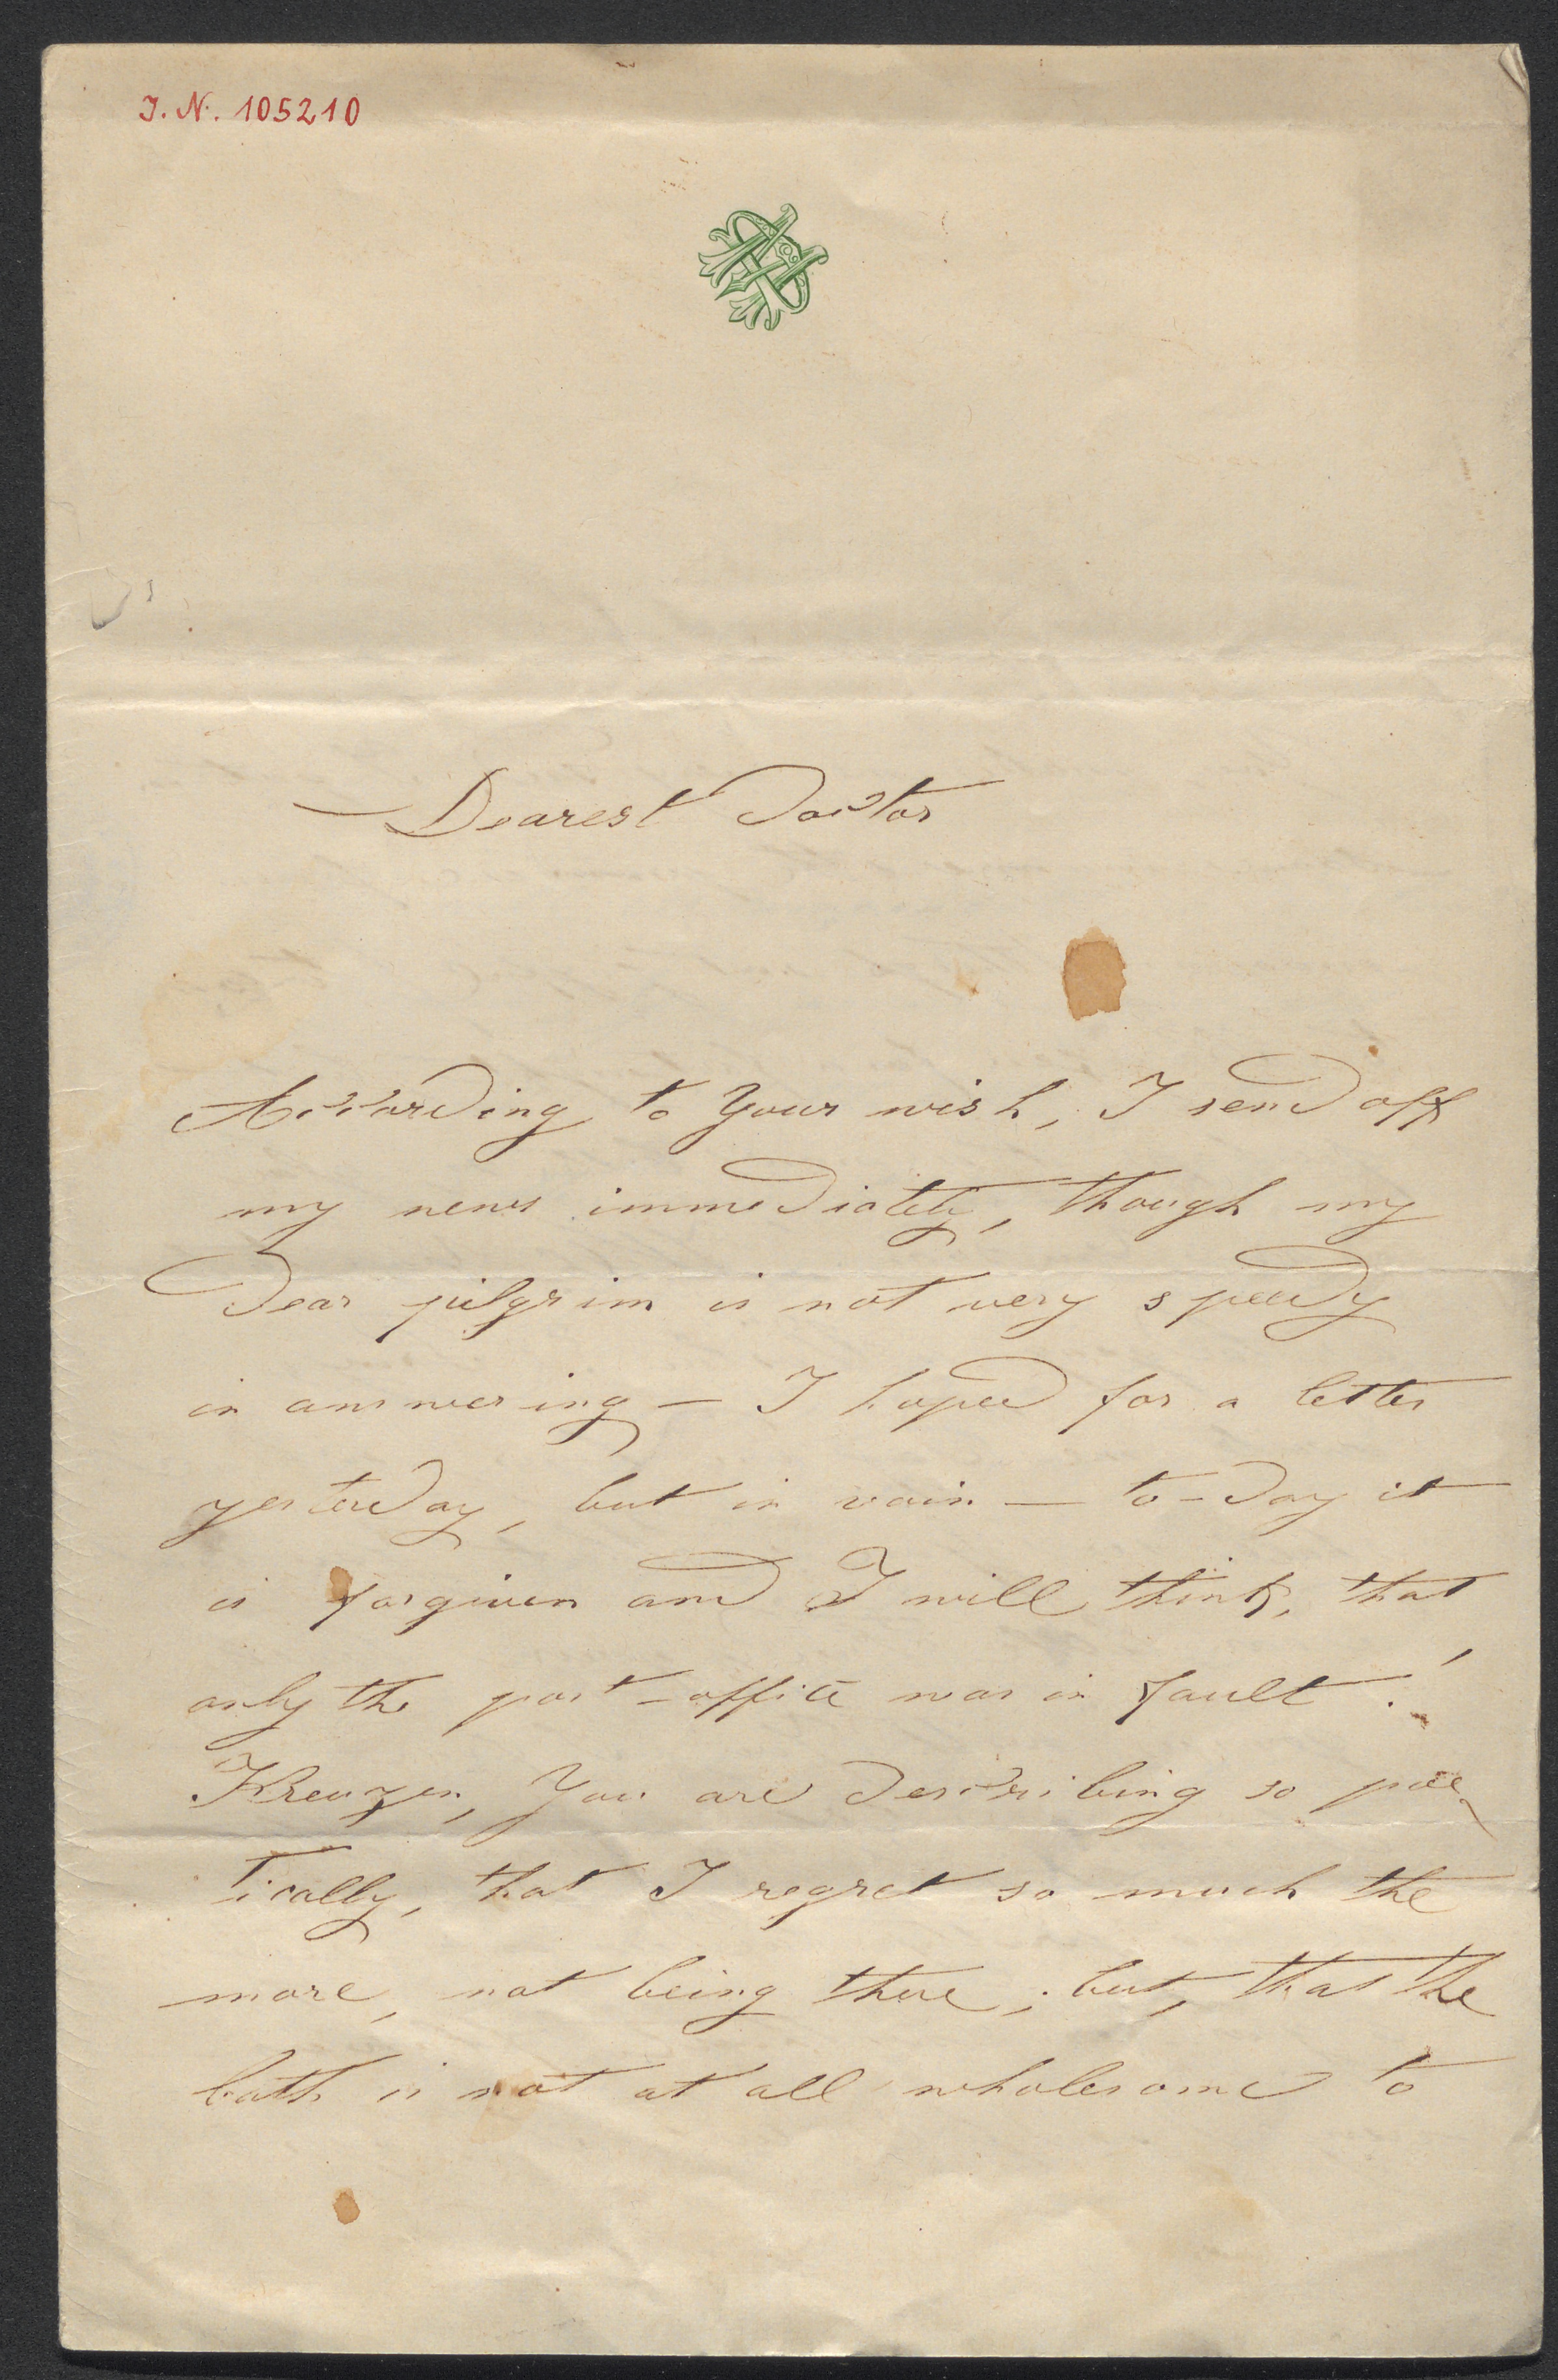 J. N. 105210
Dearest Doctor
According to Your wish, I send off
my news immediately, though my
dear pilgrim is not very speedy
in answering – I hoped for a letter
yesterday, but in vain – to-day it
is forgiven and I will think, that
only the post-office was in fault!
Kreuzen, You are describing so poe-
tically, that I regret so much the
more, not being there; but, that the
bath is not at all wholesome to